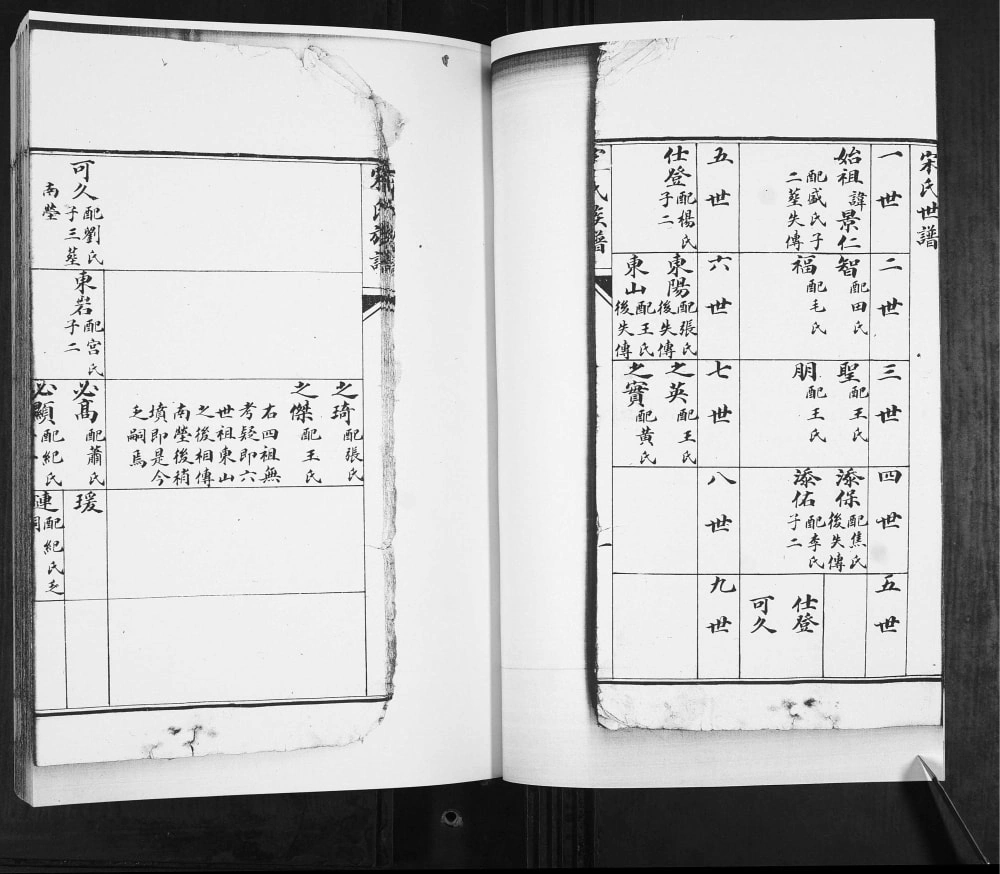 宋氏世譜
一世
始祖諱景仁
配盛氏子
二塋失傳
二世
智配田氏
福配毛氏
三世
聖配王氏
朋配王氏
四世
添保配焦氏
後失傳
添佑配李氏
子二
五世
仕登
可久
五世
仕登配楊氏
子二
六世
東陽配張氏
後失傳
東山配王氏
後失傳
七世
之英配王氏
之實配黃氏
八世
九世
氏族譜
一
宋氏族譜
之琦配張氏
之傑配王氏
右四祖無
考疑即六
世祖東山
之後相傳
南塋後稍
墳即是今
乏嗣焉
可久配劉氏
子三塋
南塋
東岩配宮氏
子二
必髙配蕭氏
必顯配紀氏
瑗
璉配紀氏乏
嗣